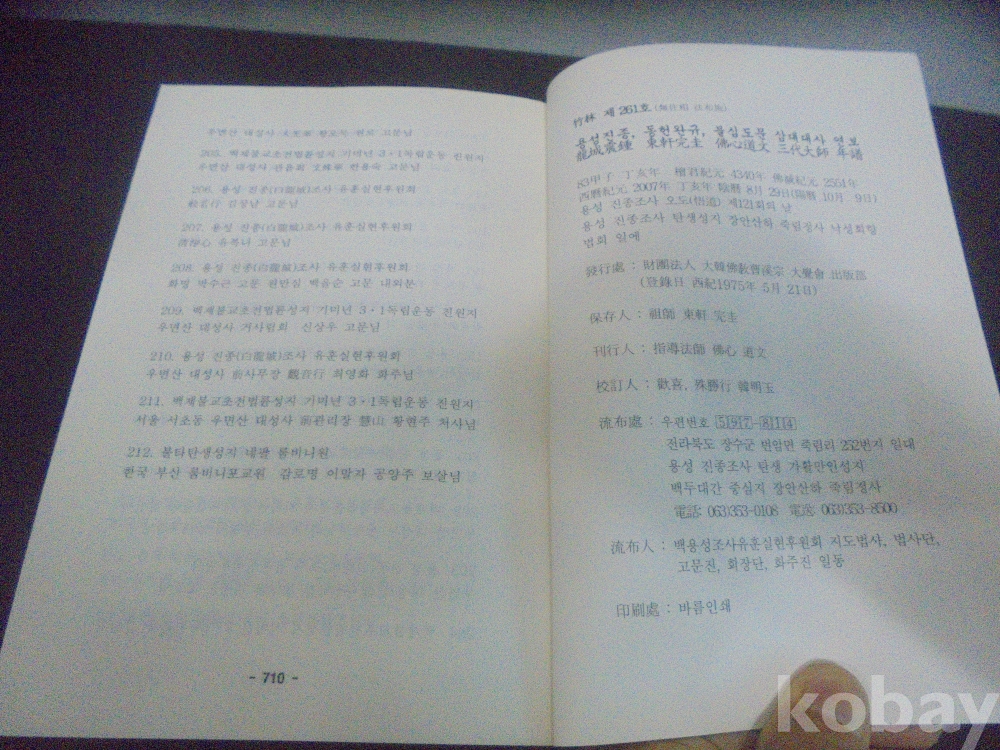 우면산 대성사 고문님
205. 백제불교초전법륜성지 기미년 3·1독립운동 진원지
우면산 대성사 고문님
206. 용성 진종(白龍城)조사 유훈실현후원회
김상남 고문님
207. 용성 진종(白龍城)조사 유훈실현후원회
유복녀 고문님
208. 용성 진종(白龍城)조사 유훈실현후원회
화명 박수근 고문 원만심 백윤순 고문 내외분
209. 백제불교초전법륜성지 기미년 3·1독립운동 진원지
우면산 대성사 거사림회 신상우 고문님
210. 용성 진종(白龍城)조사 유훈실현후원회
우면산 대성사 前사무장 觀音行 최영화 화주님
211. 백제불교초전법륜성지 기미년 3·1독립운동 진원지
서울 서초동 우면산 대성사 前관리장 慧山 황현주 처사님
212. 불타탄생성지 네팔 룸비니원
한국 부산 룸비니포교원 감로명 이말자 공양주 보살님
- 710 -
竹林 제261호
용성진종, 동헌완규, 불심도문 삼대대사 연보
龍城震鍾 東軒完圭 佛心道文 三代大師 年譜
83甲子 丁亥年 檀君紀元 4340年 佛紀紀元 2551年
西曆紀元 2007年 丁亥年 陰曆 8月 29日(陽曆 10月 9日)
용성 진종조사 오도(悟道) 제121회의 날
용성 진종조사 탄생성지 장안산하 죽림정사 낙성회향
법회 일에
發行處 : 財團法人 大韓佛敎曹溪宗 大覺會 出版部
(登錄日 西紀1975年 5月 21日)
保存人 : 祖師 東軒 完圭
刊行人 : 指導法師 佛心 道文
校訂人 : 歡喜, 殊勝行 韓明玉
流布處 : 우편번호 597-814
전라북도 장수군 번암면 죽림리 252번지 일대
용성 진종조사 탄생 가활만인성지
백두대간 중심지 장안산하 죽림정사
電話 063)353-0108 電送 063)353-8500
流布人 : 백용성조사유훈실현후원회 지도법사, 법사단,
고문진, 회장단, 화주진 일동
印刷處 : 바름인쇄
kobay